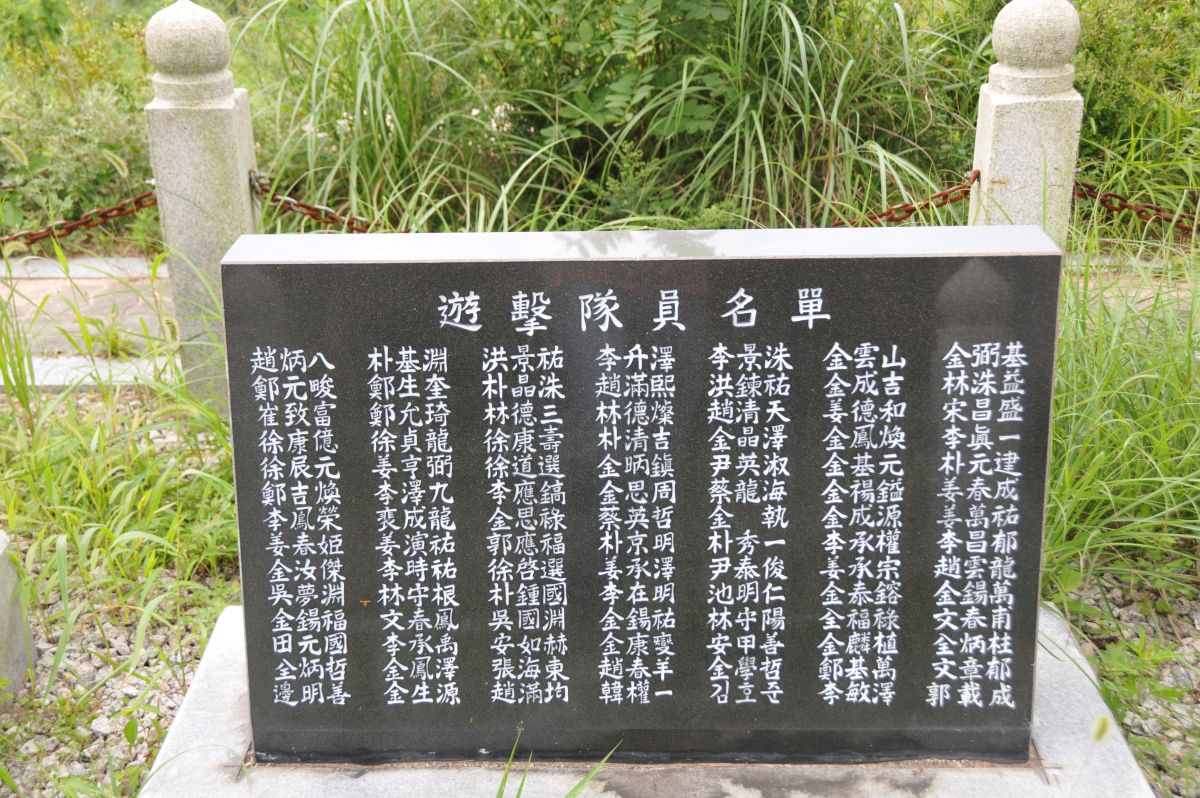 遊擊隊員名單
趙炳八 朴基淵 洪景祐 李升澤 李景洙 金雲山 金弼基
鄭元畯 鄭生奎 朴晶洙 趙滿熙 洪鍊祐 金成吉 林洙益
崔致富 鄭允琦 林德三 林德燦 趙清天 姜德和 宋昌盛
徐康億 徐貞龍 徐康壽 朴清吉 金晶澤 金鳳煥 李眞一
徐辰元 姜亨弼 徐道選 金昞鎮 尹英淑 金基元 朴元建
鄭吉煥 李澤九 李應鎬 金思周 蔡龍海 金禓鎰 姜春成
李鳳榮 裵成龍 金思祿 蔡英哲 金執 金成源 姜萬祐
姜春姬 姜演祐 郭應福 朴京明 朴秀一 李承權 李昌郁
金汝傑 李時祐 徐啓選 姜承澤 尹泰俊 姜承宗 趙雲龍
吳夢淵 林守根 朴鍾國 李在明 池明仁 金泰鎔 金錫萬
金錫福 文春鳳 吳國淵 金錫祐 林守陽 全福祿 文春甫
田元國 李承禹 安如赫 金康燮 安甲善 金麟植 全炳柱
全炳哲 金鳳澤 張海東 趙春羊 金學哲 鄭基萬 文章郁
邊明善 金生源 趙滿均 韓權一 김호준 李敏澤 郭載成